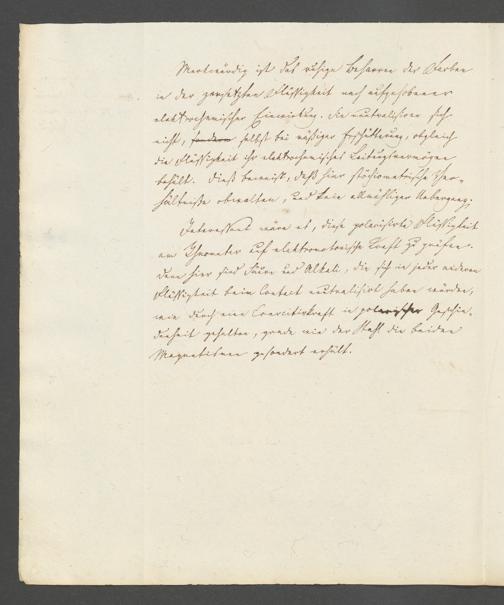 Merkwürdig ist das ruhige Beharren der Farben
in der zersetzten Flüssigkeit nach aufgehobener
elektrochemischer Einwirkung. Sie neutralisiren sich
nicht, sondern selbst bei mäßiger Erschütterung, obgleich
die Flüssigkeit ihr elektrochemisches Leitungsvermögen
behält. Dieß beweist, daß hier stöchiometrische Ver-
hältnisse obwalten, und kein allmähliger Uebergang.
Interessant wäre es, diese polarisirte Flüssigkeit
am auf elektromotorische Kraft zu prüfen.
Denn hier sind Säure und Alkali, die sich in jeder anderen
Flüssigkeit beim Contact neutralisirt haben würden,
wie durch eine Coercitivkraft in polarischer Geschie-
denheit gehalten, grade wie der Stahl die beiden
Magnetismen gesondert erhält.